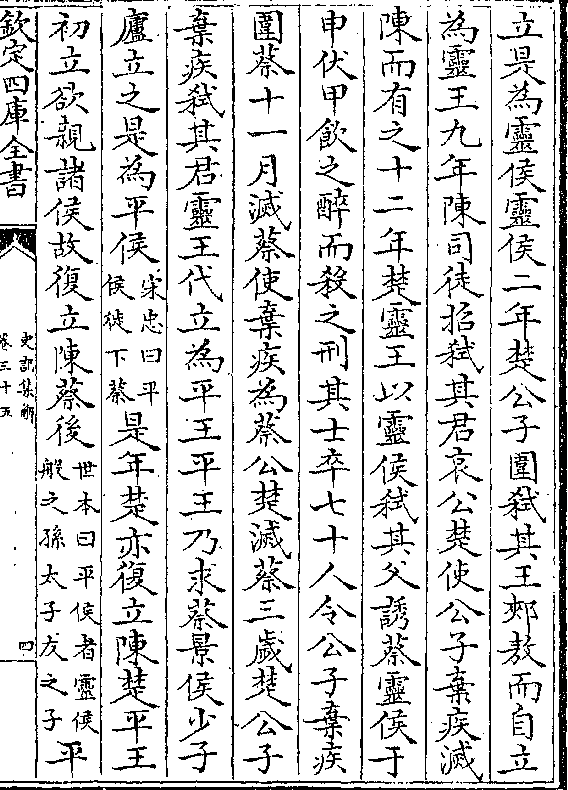 立是為靈侯靈侯二年楚公子圍弑其王郟敖而自立
為靈王九年陳司徒招弑其君哀公楚使公子棄疾滅
陳而有之十二年楚靈王以靈侯弑其父誘蔡靈侯于
申伏甲飲之醉而殺之刑其士卒七十人令公子棄疾
圍蔡十一月滅蔡使棄疾為蔡公楚滅蔡三歲楚公子
棄疾弑其君靈王代立為平王平王乃求蔡景侯少子
廬立之是為平侯宋忠曰平侯徙下蔡是年楚亦復立陳楚平王
初立欲親諸侯故復立陳蔡後世本曰平侯者靈侯般之孫太子友之子平
欽定四庫全書
史記集解
卷三十五
四